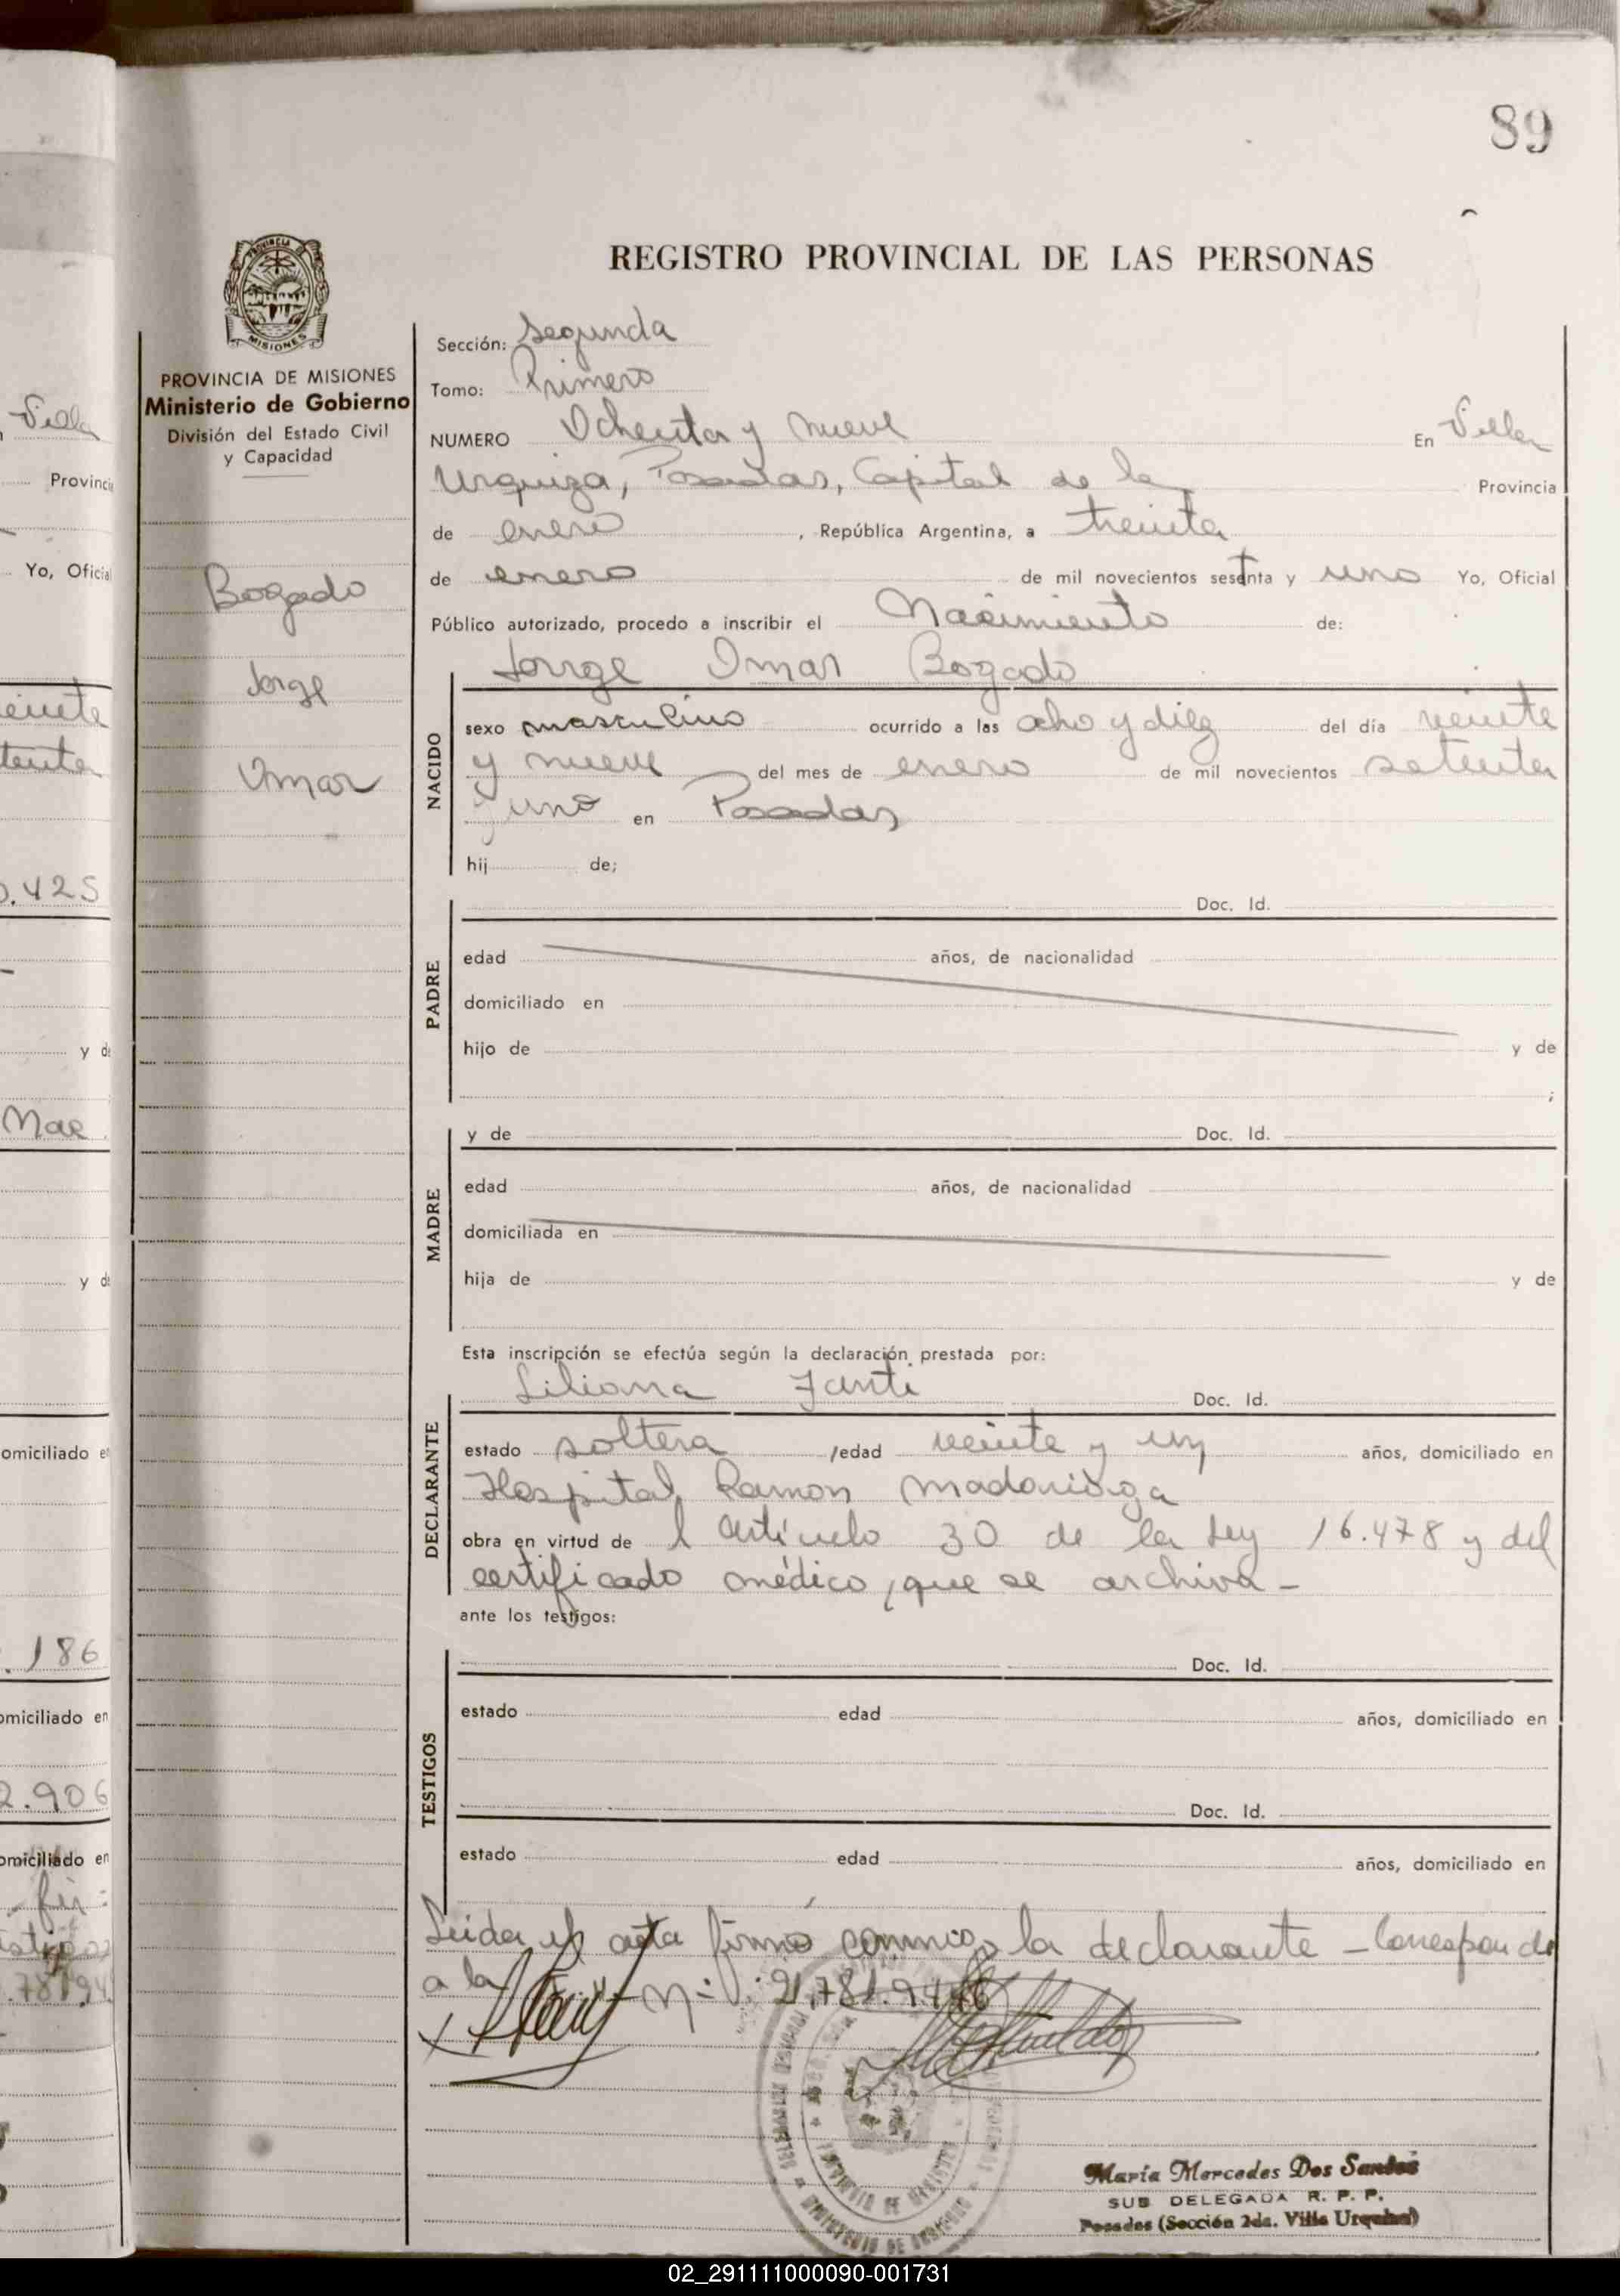 89
REGISTRO PROVINCIAL DE LAS PERSONAS
PROVINCIA DE MISIONES
Ministerio de Gobierno
División del Estado Civil
y Capacidad
Bogado
Jorge
Omar
Sección: Segunda
Tomo: Primero
NUMERO Ochenta y nueve En Villa
Urquiza, Posadas, Capital de la Provincia
de enero, República Argentina, a treinta
de enero de mil novecientos sesenta y uno Yo, Oficial
Público autorizado, procedo a inscribir el Nacimiento de:
Jorge Omar Bogado
NACIDO
sexo masculino ocurrido a las ocho y diez del día veinte
y nueve del mes de enero de mil novecientos setenta
y uno en Posadas
hij de;
PADRE
Doc. Id.
edad años, de nacionalidad
domiciliado en
hijo de y de
;
MADRE
y de Doc. Id.
edad años, de nacionalidad
domiciliada en
hija de y de
Esta inscripción se efectúa según la declaración prestada por:
DECLARANTE
Liliana Doc. Id.
estado soltera /edad veinte y un años, domiciliado en
Hospital Ramon Madariaga
obra en virtud de l artículo 30 de la Ley 16.478 y del
certificado médico, que se archiva -
ante los testigos:
TESTIGOS
Doc. Id.
estado edad años, domiciliado en
Doc. Id.
estado edad años, domiciliado en
Leida el acta firmó conmigo la declarante - Corresponde
a la
María Mercedes Dos Santos
SUB DELEGADA R. P. P.
Posadas (Sección 2da. Villa Urquiza)
02_291111000090-001731